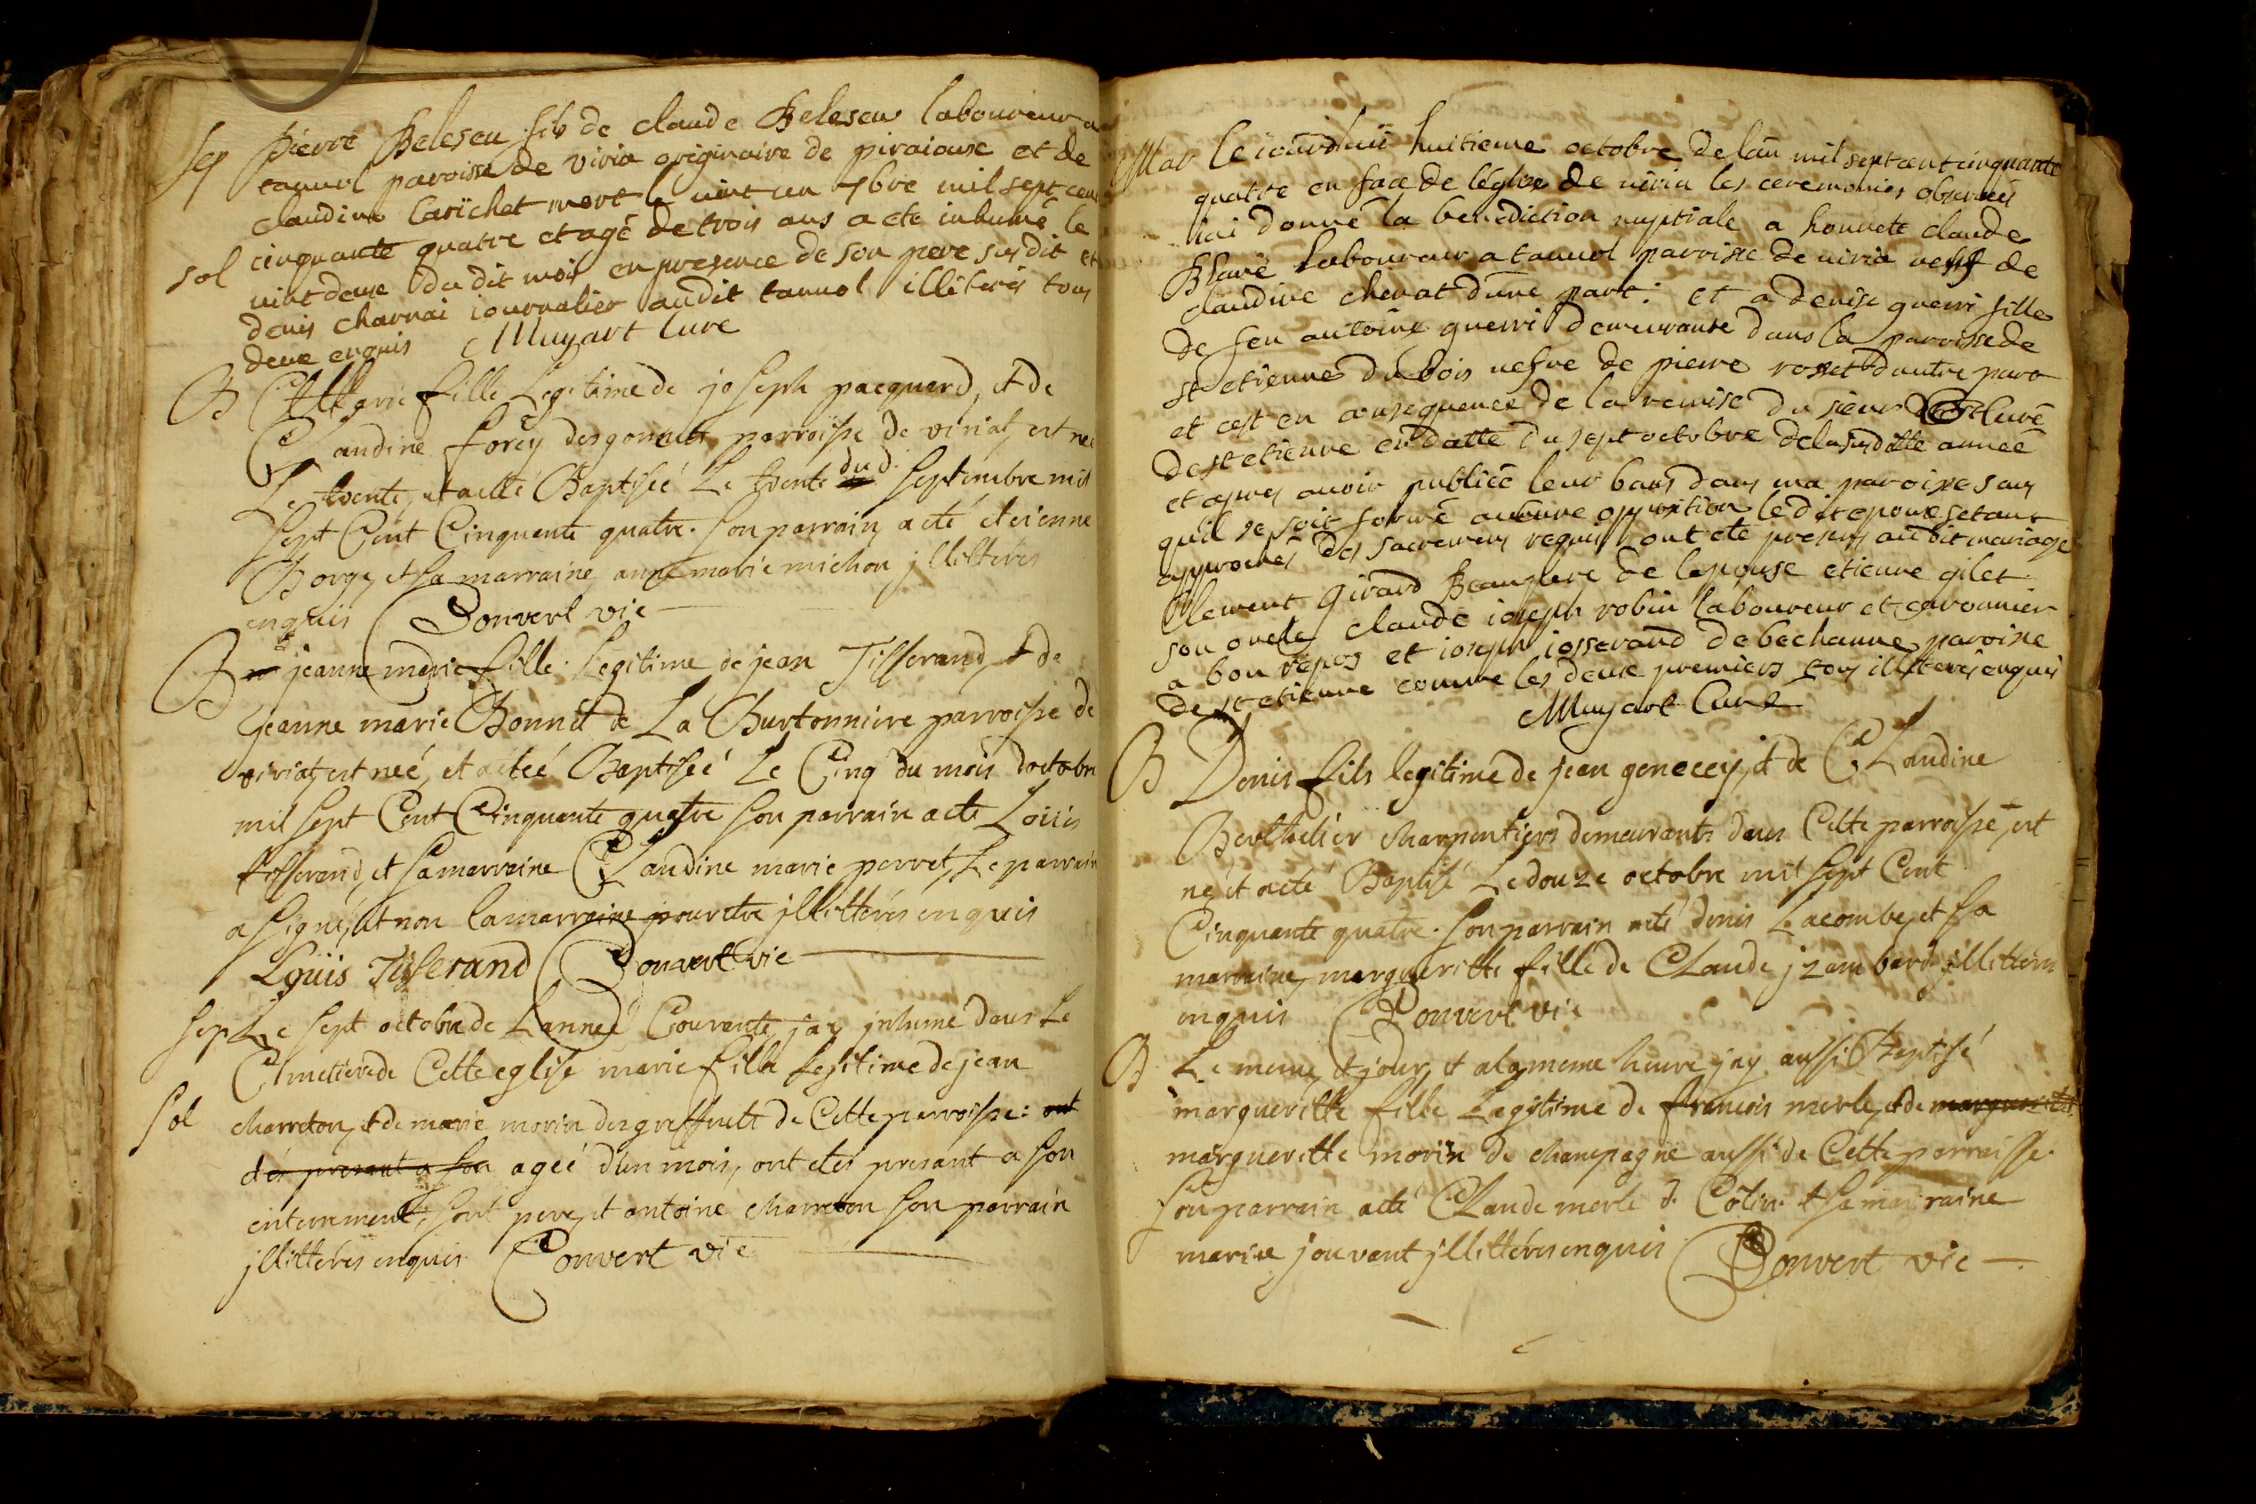 Sep Pierre Beleseu fils de claude Beleseu laboureur a
tannol paroisse de viria originaire de piraiouse et de
claudine larichet mort le vint un 7bre mil sept cens
cinquante quatre et agé de trois ans a ete inhumé le
Sol vint deux du dit mois en presence de son pere susdit et
denis charnai iournalier audit tannol illiterés tous
deux enquis Muyart Curé
B Marie fille Legitime de joseph pacquard, et de
Claudine forêy des gonnets parroisse de viriat, est née
Le trente, et aetté Baptiseé Le trente dud. Septembre mil
Sept Cent Cinquente quatre. Son parrain acté etienne
Borgy et sa marraine anne marie michon jllitterés
enquis Convert vic
B jeanne marie fille Legitime de jean Tisserand, et de
jeanne marie Bonnet de La Burtonniere parroisse de
viriat, est neé, et acteé Baptiseé Le Cinq du mois doctobre
mil sept Cent Cinquente quatre son parrain acte Loüis
tisserand, et sa marraine Claudine marie perret, Le parrain
a signé, et non la marraine pour etre jllitterés enquis
Loüis Tisserand Convert vic
Sep Le sept octobre de Lanneé Courente jay jnhumé dans Le
Cimetiere de Cette eglise marie fille Legitime de jean
Sol charreton, et de marie morin des greffeult de Cette parroisse: ont
étés present a son ageé d'un mois, ont etés present a son
enterrement, sont pere, et antoine charreton son parrain
jllitterés enquis Convert vic
Mar Le iourdhuï huitieme octobre de lan mil sept cent cinquante
quatre en face de léglise de viria les ceremonies observeés
iai donné la benediction nuptiale a honnete claude
Blavé laboureur a tannol paroisse de viria veuf de
claudine chevat d'une part: et a denise guerri fille
de feu antoine guerri demeurante dans la paroisse de
st etienne du bois vefve de pierre rosset dautre part
et cest en consequence de la remise du sieur Curé
de st etienne en datte du sept octobre de la susditte anneé
et apres avoir publieé leur bans dans ma paroisse sans
quil se soit formé aucune opposition le dit epoux setant
approchés des sacremens requis ont eté presens au dit mariage
Clement Girard Beaupere de lepouse etienne gilet
son oncle claude ioseph robin laboureur et caronnier
a bon repos et ioseph iosserand de bechanne paroisse
de st etienne comme les deux premiers tous illiterés enquis
Muyart Curé
B Denis fils legitime de jean genecey, et de Claudine
Berthelier charpentiers demeurants dans Cette parroisse, est
né, et acté Baptisé Le douze octobre mil sept Cent
Cinquante quatre. Son parrain acté denis Lacombe, et sa
marraine, margueritte fille de Claude jzambard jllitterés
enquis Convert vic
B Le meme jour, et a la meme heure jay aussi Baptisé
margueritte fille Legitime de francois merle, et de margueritte
margueritte morin de champagne aussi de Cette parroisse.
Son parrain acté Claude merle d. Colin. et sa marraine
marie jouvent jllitterés enquis Convert vic